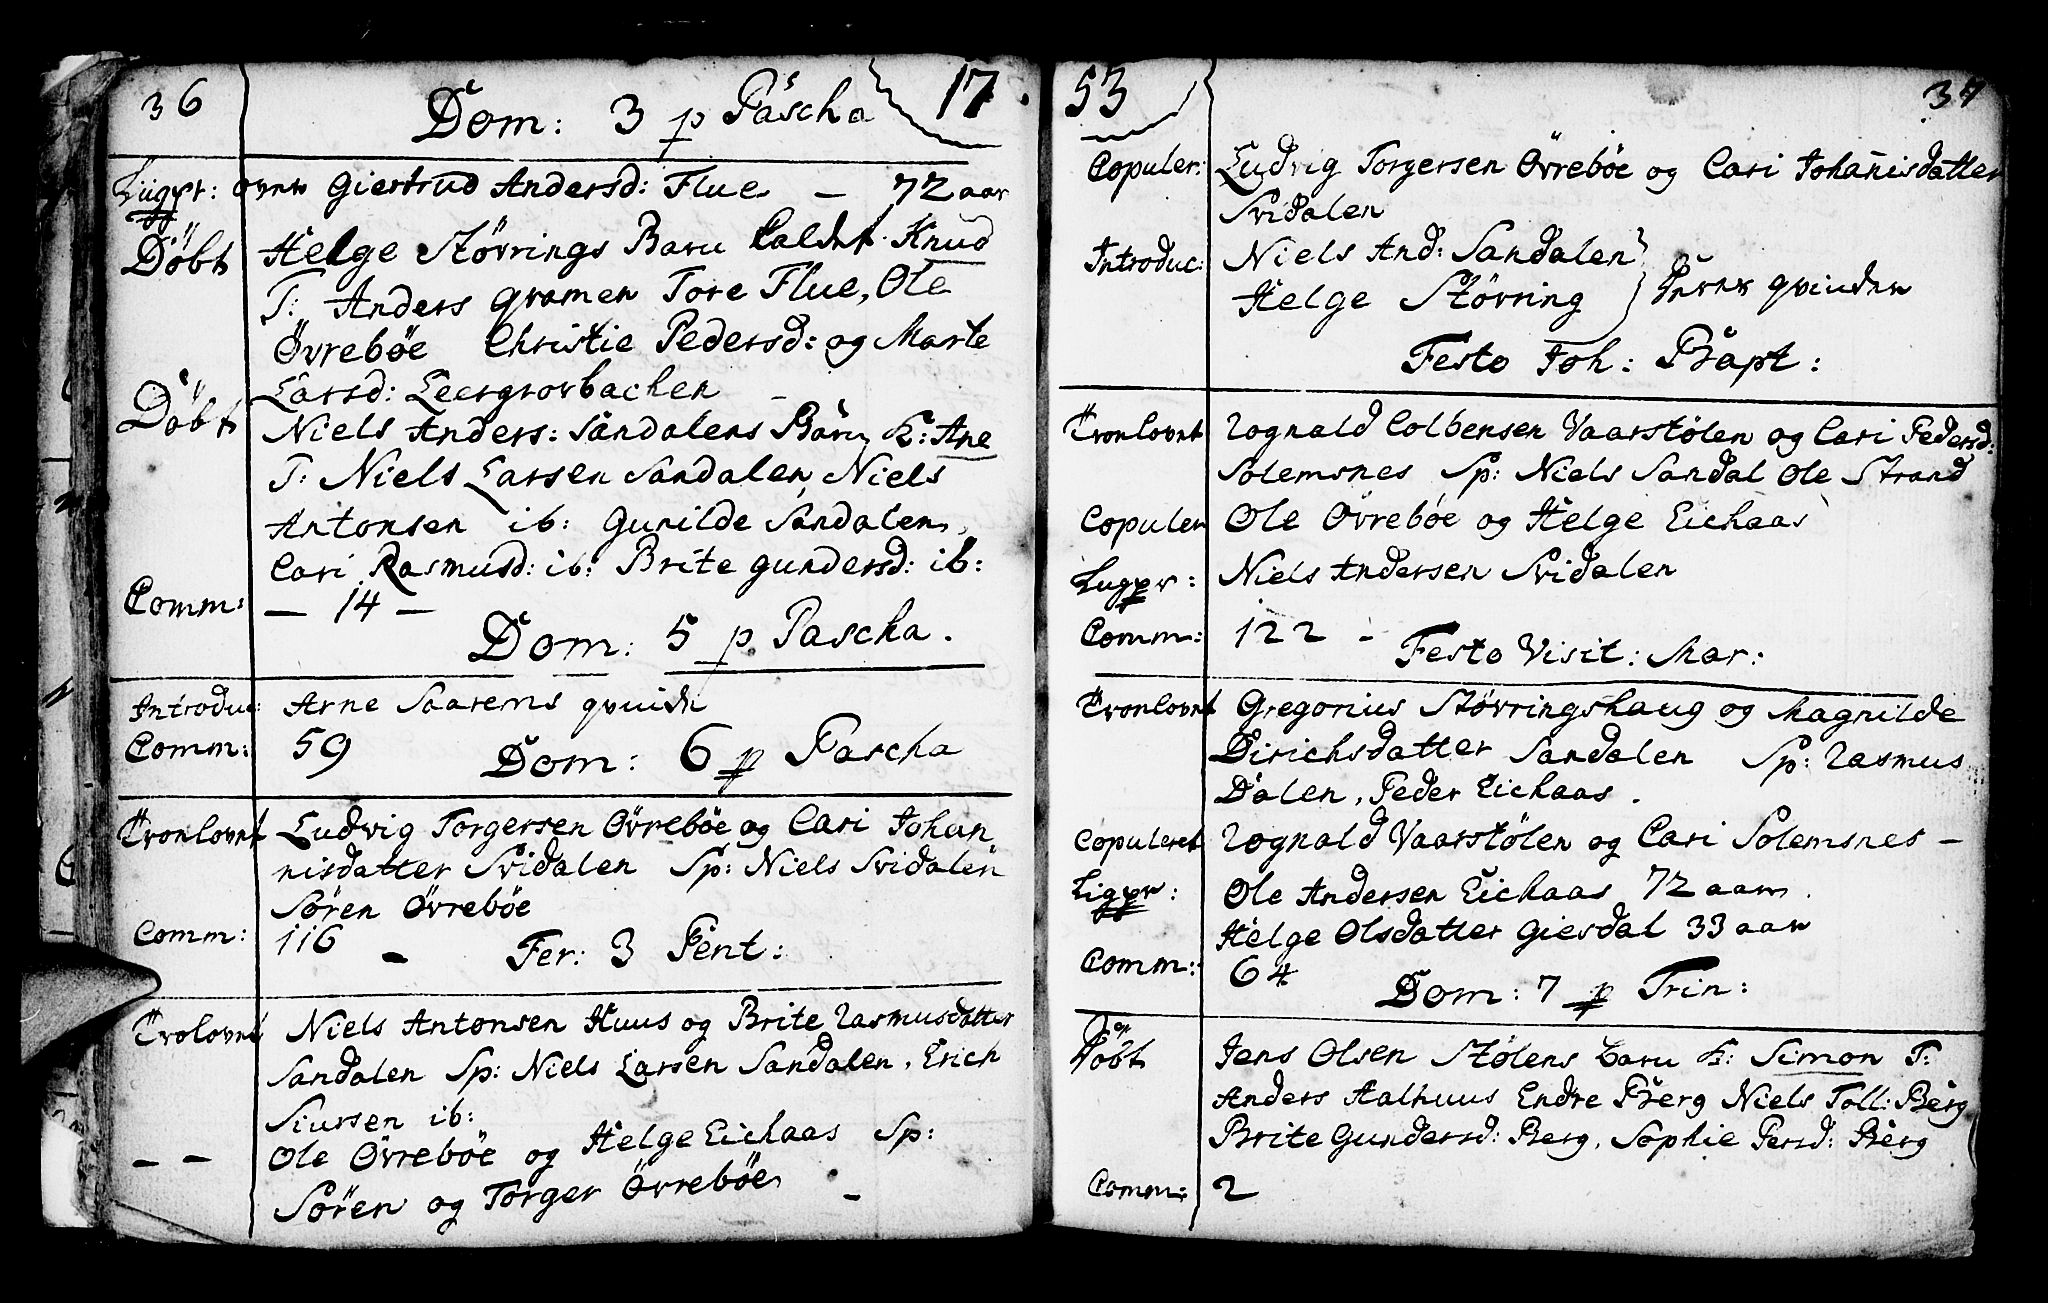 36 Dom: 3 p Pascha 17
Ligpr: over Giertrud Andersd: Flue — 72 aar
Döbt Helge Störrings Barn kaldet Knud
T: Anders Gramen Tore Flue, Ole
Övreböe Christie Pedersd: og Marte
Larsd: Leergrovbachen
Döbt Niels Anders: Sandalens Barn K: Ane
T: Niels Larsen Sandalen, Niels
Antonsen ib: Gunilde Sandalen,
Cari Rasmusd: ib: Brite Gundersd: ib:
Comm: — 14 —
Dom: 5 p Pascha.
Introduc: Arne Saarems qvinde
Comm: 59 Dom: 6 p Pascha
Tronlovet Ludvig Torgersen Övreböe og Cari Johan
nisdatter Svidalen Sp: Niels Svidalen
Sören Övreböe
Comm: 116 - Fer: 3 Pent:
Trolovet Niels Antonsen Huus og Brite Rasmusdatter
Sandalen Sp: Niels Larsen Sandalen, Erich
Siursen ib:
— — Ole Övreböe og Helge Eichaas Sp:
Sören og Torger Övreböe —
53 37
Copuler: Ludvig Torgersen Övreböe og Cari Johanisdatter
Svidalen
Introduc: Niels And: Sandalen
Helge Störring } deres qvinder
Festo Joh: Bapt:
Tronlovet Rognald Colbensen Vaarstölen og Cari Pedersd:
Solemsnes Sp: Niels Sandal Ole Strand
Copuler Ole Övreböe og Helge Eichaas
Ligpr: Niels Andersen Svidalen
Comm: 122 - Festo Visit: Mar:
Tronlovet Gregorius Störringshaug og Magnilde
Dirichsdatter Sandalen Sp: Rasmus
Dalen, Peder Eichaas.
Copuleret Rognald Vaarstölen og Cari Solemsnes —
Ligpr: Ole Andersen Eichaas 72 aar.
Helge Olsdatter Giesdal 33 aar
Comm: 64 Dom: 7 p Trin:
Döbt Jens Olsen Stölens barn K: Simon T:
Anders Aalhuus Endre Berg Niels Toll: Berg
Brite Gundersd: Berg, Sophie Persd: Berg
Comm: 2